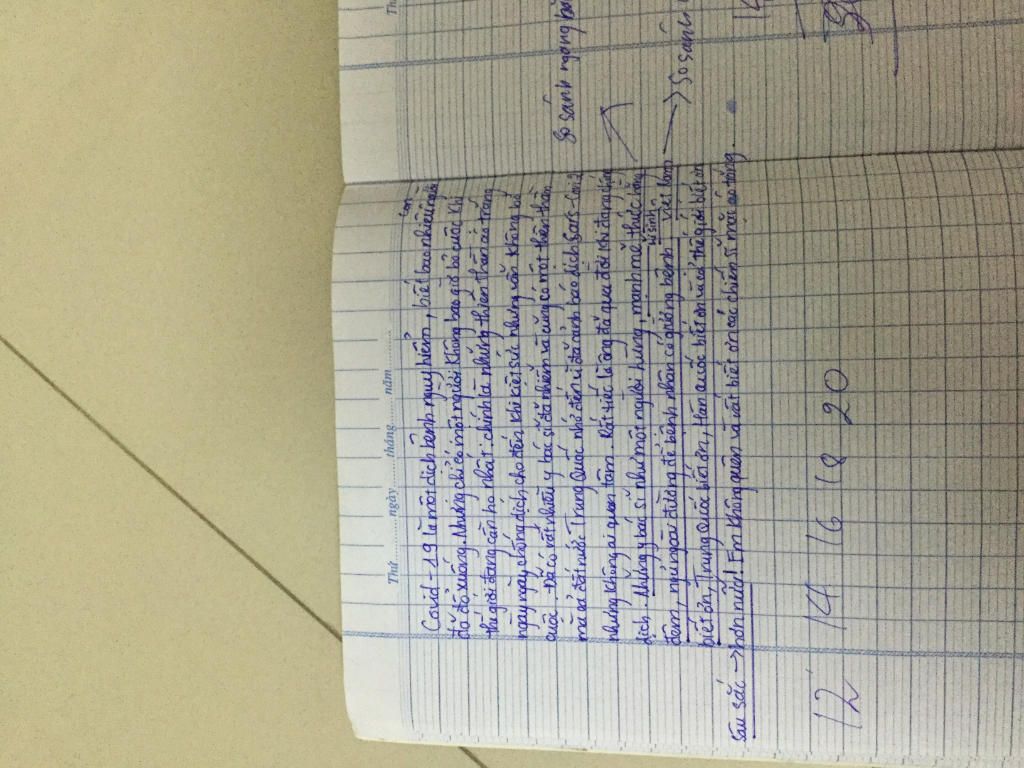 Thứ ........ ngày ........ tháng ........ năm ........
Covid - 19 là một dịch bệnh nguy hiểm, biết bao nhiêu người
đã đổ xuống. Nhưng chỉ có một người không bao giờ bỏ cuộc. Khi
thế giới đang cần họ nhất: chính là những thiên thần áo trắng
ngày ngày chống dịch cho đến khi kiệt sức nhưng vẫn không bỏ
cuộc. Đã có rất nhiều y bác sĩ đã nhiễm và cũng có một thiên thần
mà cả đất nước Trung Quốc nhớ đến vì đã cảnh báo dịch Sars-Cov-2
nhưng không ai quan tâm. Rất tiếc là ông đã qua đời khi đang chữa
dịch. Những y bác sĩ như một người hùng mạnh mẽ, thức trắng
hi sinh
đêm, ngủ ngoài đường để bệnh nhân có giường bệnh. Việt Nam
biết ơn, Trung Quốc biết ơn, Hàn Quốc biết ơn và cả thế giới biết ơn
sâu sắc → hơn nữa! Em không quên và rất biết ơn các chiến sĩ mặc áo trắng.
12 14 16 18 20
So sánh ngang bằ
→ So sánh